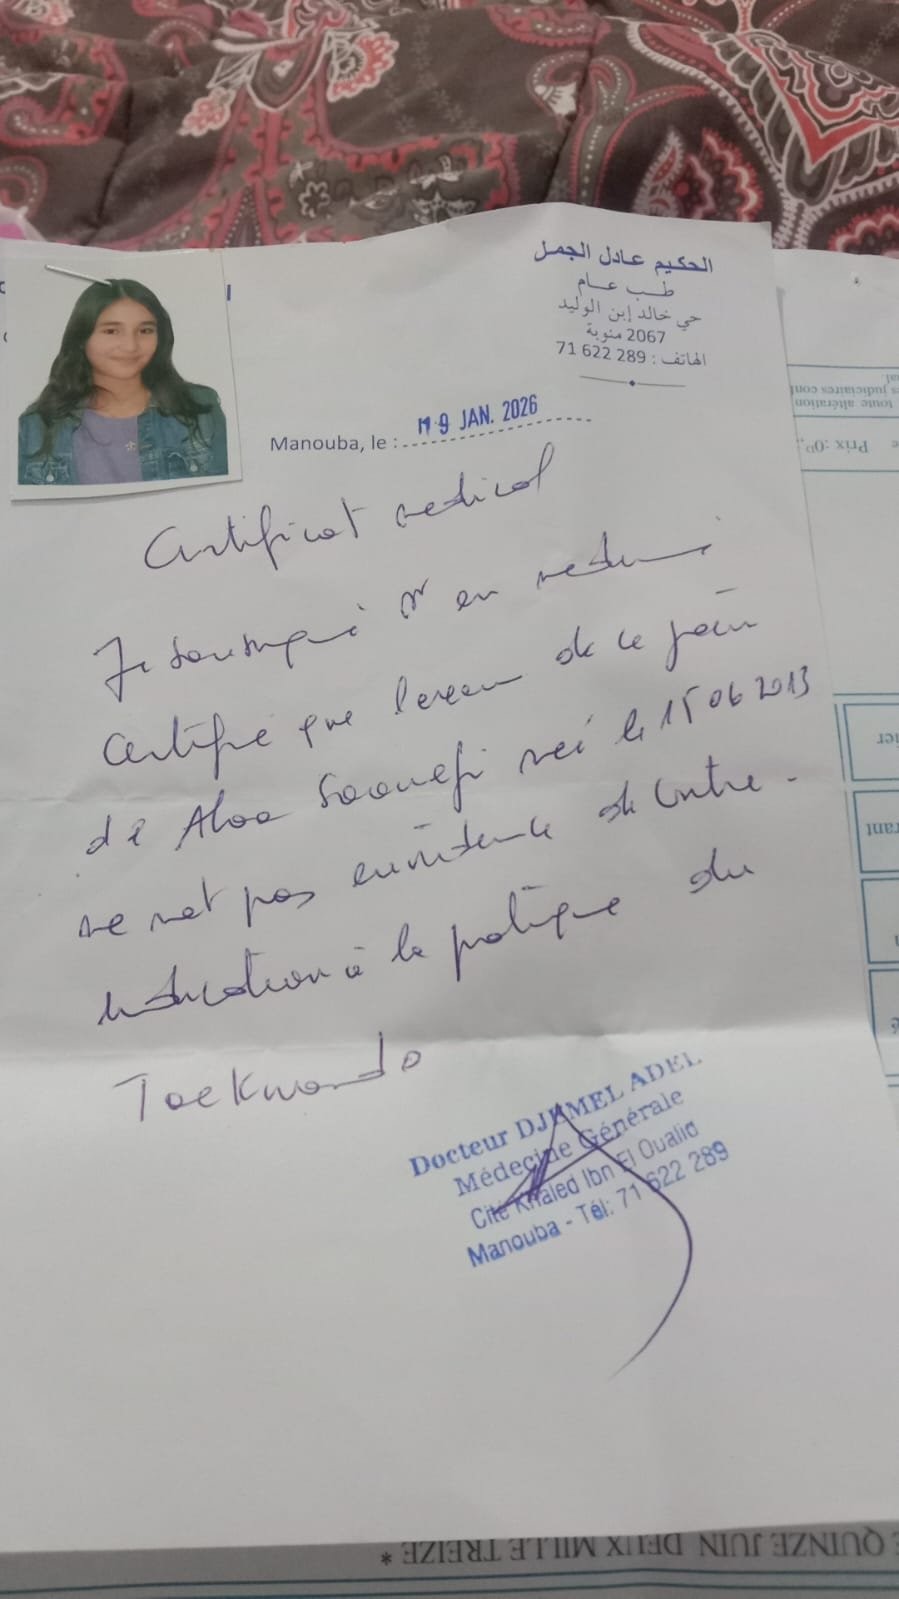 الحكيم عادل الجمل
طب عام
حي خالد إبن الوليد
2067 منوبة
الهاتف : 289 622 71
Manouba, le : 19 JAN. 2026
Certificat medical
Je soussigné Dr en medecine
Certifie que l'examen de ce jour
de Alaa né le 15 06 2013
ne met pas en évidence de contre-
indication à la pratique du
Taekwondo
Docteur DJEMEL ADEL
Médecine Générale
Cité Khaled Ibn El Oualid
Manouba - Tél: 71 622 289
toute altération
Prix :0
QUINZE JUIN DEUX MILLE TREIZE *